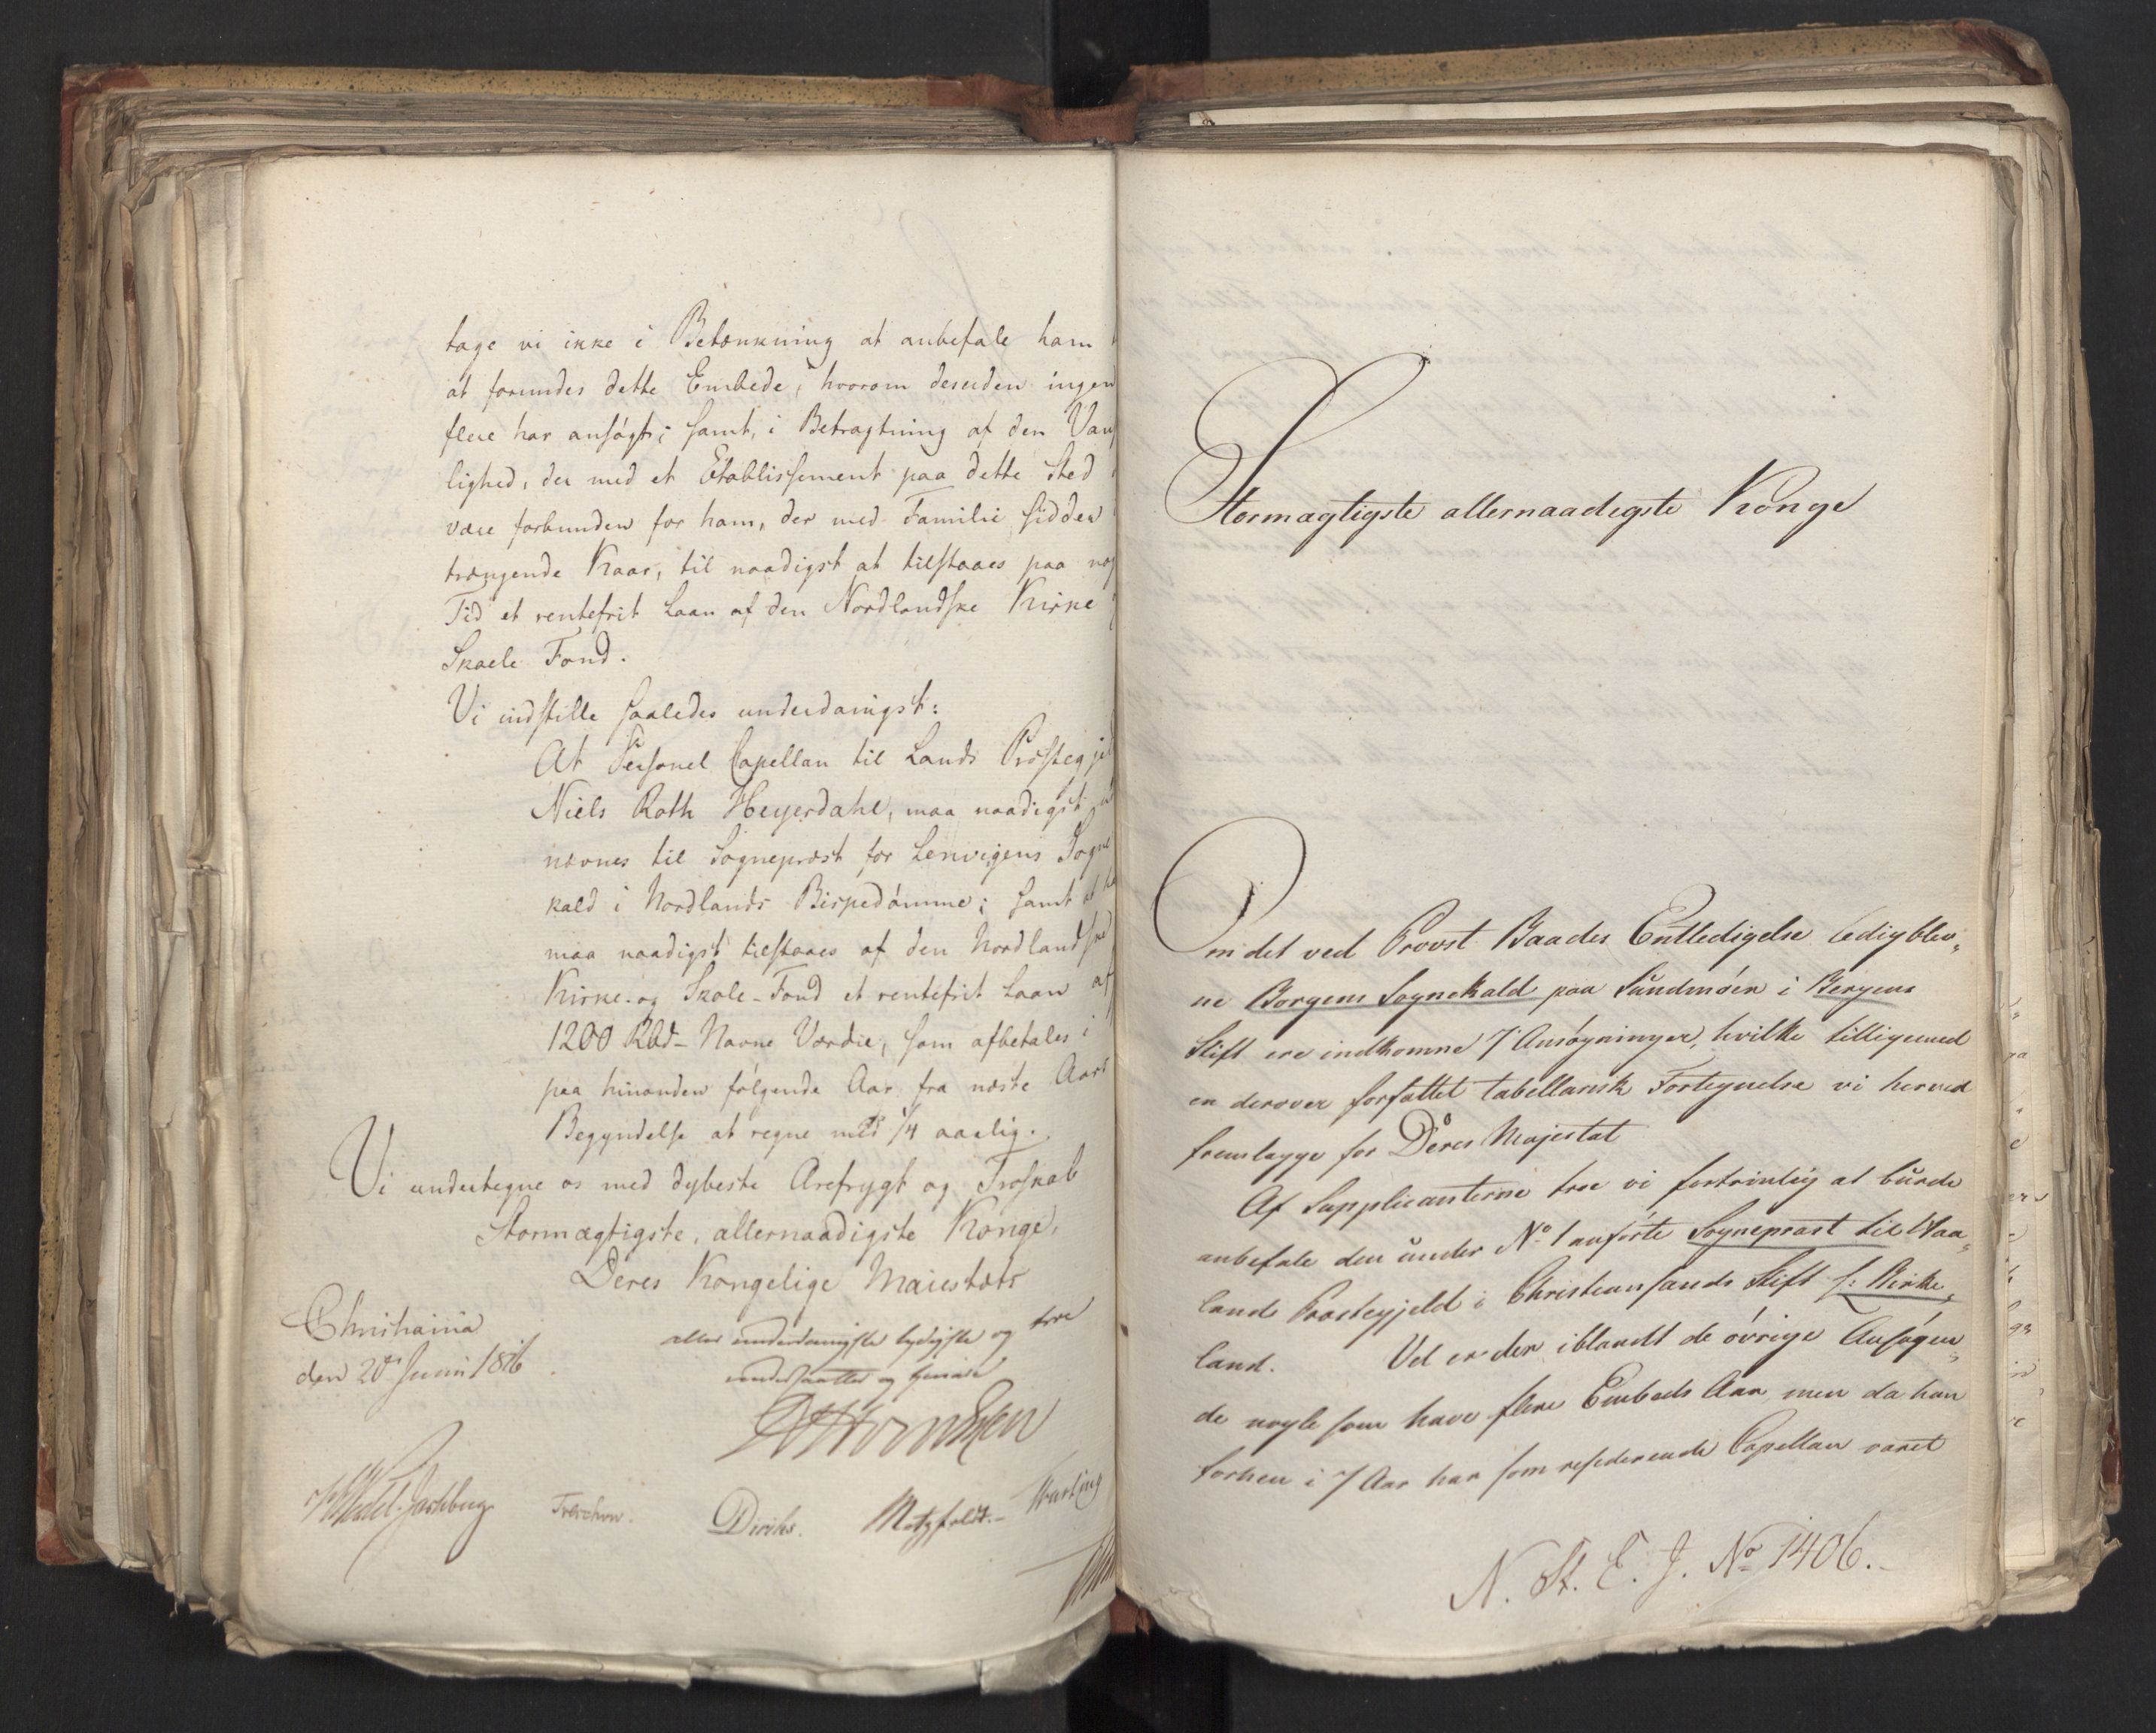 tage vi ikke i Betænkning at anbefale ham
at forundes dette Embede, hvorom desuden ingen
flere har ansøgt; samt, i Betragtning af den Van
lighed, der med et Etablissement paa dette Sted
være forbunden for ham, der med Familie sidder
trængende Kaar, til naadigst at tilstaaes paa
Tid et rentefrit Laan af den Nordlandske Kirke
Skole Fond.
Vi indstille saaledes underdanigst:
At Personel Capellan til Lands Præstegjel
Niels Roth Heyerdahl, maa naadigst
nævnes til Sogneprest for Lenvigens Sogne
kald i Nordlands Bispedømme; samt at
maa naadigst tilstaaes af den Nordlandske
Kirke- og Skole-Fond et rentefrit Laan af
1200 Rbd Navne Værdie, som afbetales i
paa hinanden følgende Aar fra næste Aars
Begyndelse at regne med 1/4 aarlig.
Vi undertegne os med dybeste Ærefrygt og Troskab
Stormægtigste, allernaadigste Konge,
Deres Kongelige Maiestæts
Christiania
den 20de Junii 1816
allerunderdanigste lydigste og troe
undersaatter og tjenere
Wedel-Jarlsberg
Treschow.
Diriks.
Motzfeldt.
Stormægtigste allernaadigste Konge
Om det ved Provst Baades Entledigelse ledigblev,,
ne Borgens Sognekald paa Sundmøer i Bergens
Stift ere indkomne 7 Ansøgninger, hvilke tilligemed
en derover forfattet tabellarisk Fortegnelse vi herved
fremlægge for Deres Majestæt
Af Supplicanterne troe vi fortrinlig at burde
anbefale den under No 1 anførte Sognepræst til Waa,,
lands Præstegjeld i Christiansands Stift S: Kirke,,
land. Vel er der iblandt de øvrige Ansøgen,,
de nogle som have flere Embeds Aar, men da han
forhen i 7 Aar har som residerende Capellan været
N. St. E. J. No 1406.